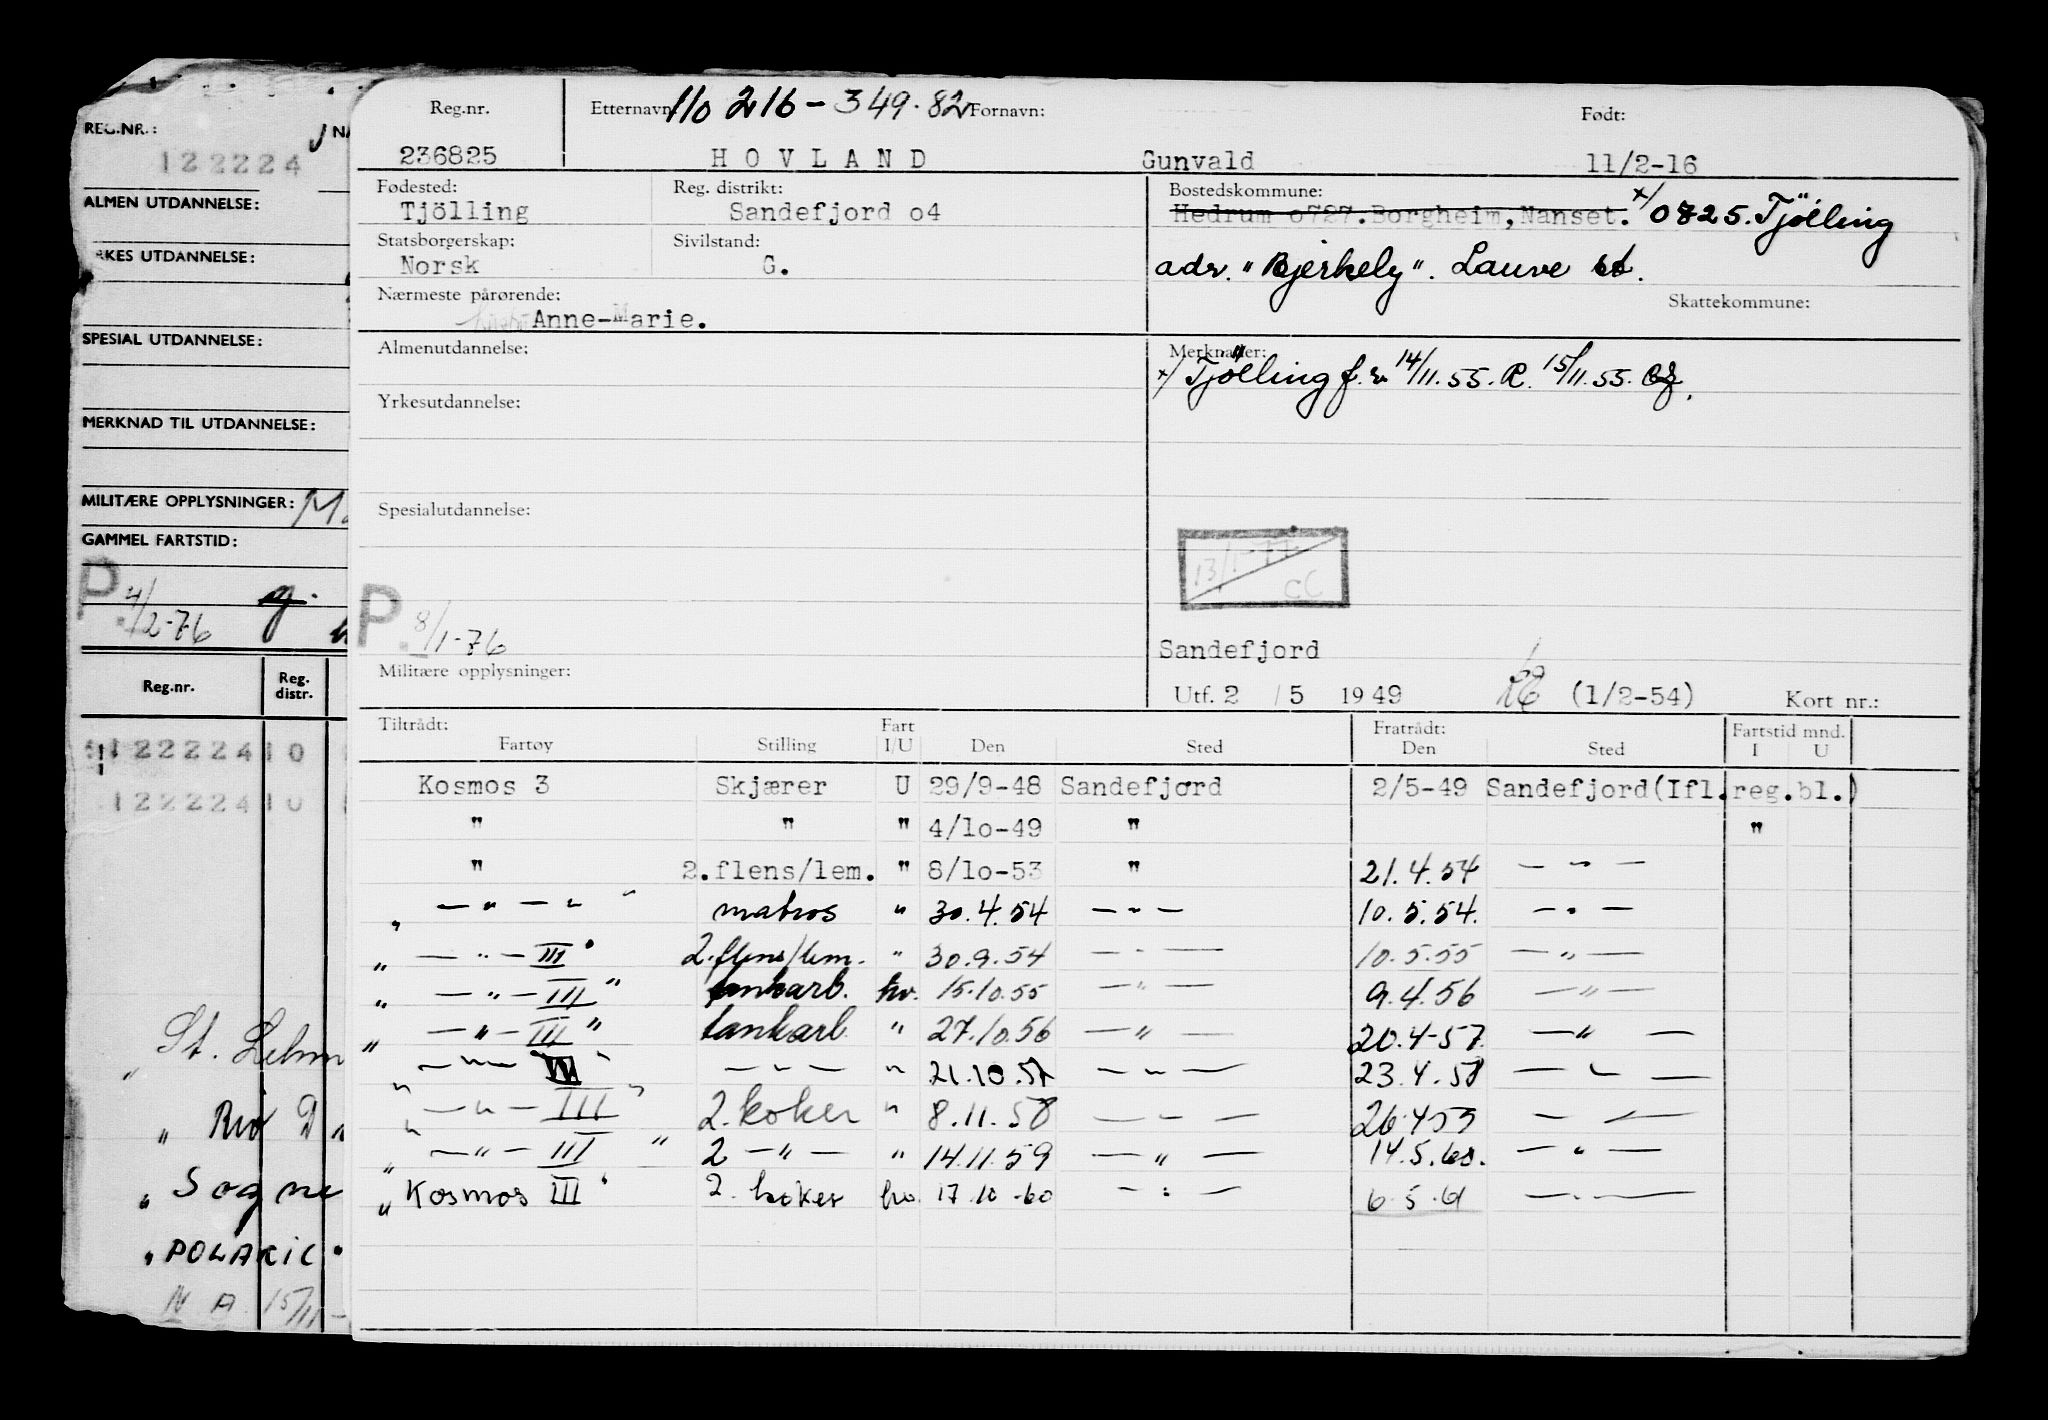 REG.NR.:
122224
ALMEN UTDANNELSE:
KES UTDANNELSE:
SPESIAL UTDANNELSE:
MERKNAD TIL UTDANNELSE:
MILITÆRE OPPLYSNINGER:
GAMMEL FARTSTID:
P. 4/2-76
Reg.nr. Reg. distr.
12222410
12222410
" St.
" Rio D
" Sogne
"POLARIC"
N A 15/11-
Reg.nr. Etternavn: 110216-349.82 Fornavn: Født:
236825 HOVLAND Gunvald 11/2-16
Fødested: Reg. distrikt: Bostedskommune:
Tjölling Sandefjord o4 Hedrum o727.Borgheim,Nanset. x/ 0725. Tjölling
Statsborgerskap: Sivilstand:
Norsk G. adr. "Bjerkely". Lauve st.
Nærmeste pårørende: Skattekommune:
Anne-Marie.
Almenutdannelse: Merknader:
x/ Tjölling f.r. 14/11.55. R. 15/11.55.
Yrkesutdannelse:
Spesialutdannelse:
13/1-77
CC
P. 8/1-76
Sandefjord
Militære opplysninger:
Utf. 2 / 5 1949 (1/2-54) Kort nr.:
Tiltrådt: Fart Fratrådt: Fartstid mnd.
Fartøy Stilling I/U Den Sted Den Sted I U
Kosmos 3 Skjærer U 29/9-48 Sandefjord 2/5-49 Sandefjord(Ifl.reg.bl.)
" " " 4/lo-49 " "
" 2.flens/lem. " 8/lo-53 " 21.4.54 — " —
" — " — " " matros " 30.4.54 — " — 10.5.54. — " —
" — " — III" 2.flens/lem. " 30.9.54 — " — 10.5.55 — " —
" — " — III" tankarb. hv. 15.10.55 — " — 9.4.56 — " —
" — " — III" tankarb " 27.10.56 — " — 20.4-57. — " —
" — " — " — " — " 21.10.57 — " — 23.4.58 — " —
" — " — III" 2. koker " 8.11.58 — " — 26.4.59 — " —
" — " — III " 2 — " — " 14.11.59 — " — 14.5.60. — " —
" Kosmos III" 2. koker hv. 17.10-60 — " — 6.5.61 — " —